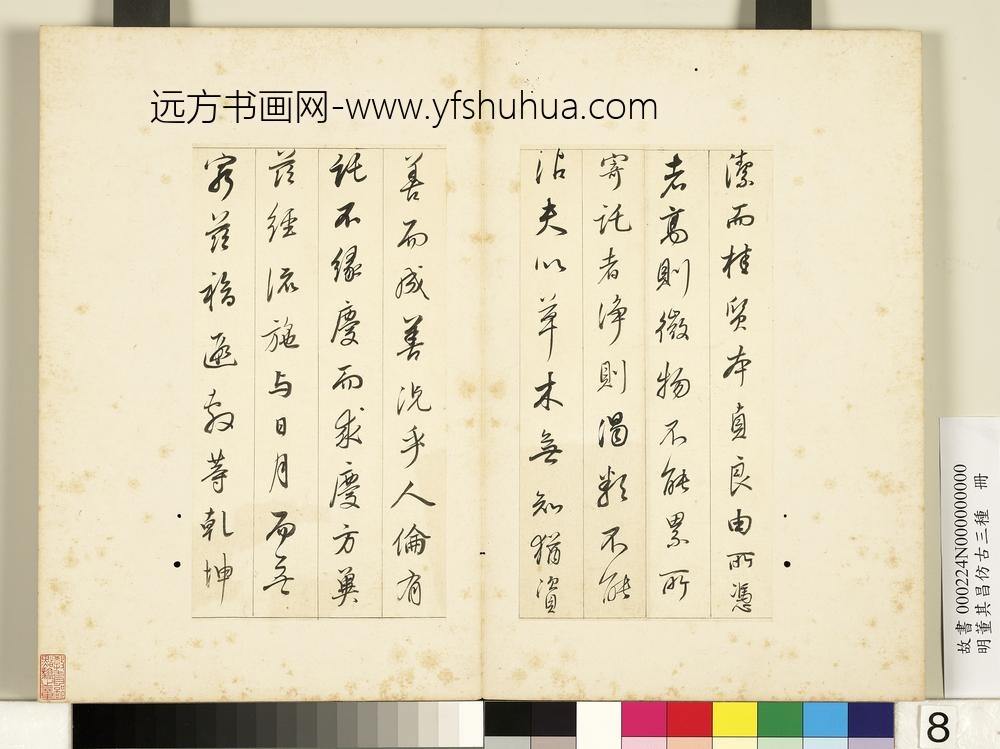 远方书画网-www.yfshuhua.com
潔而桂質本貞良由所憑
者高則微物不能累所
寄託者淨則濁類不能
沾夫以草木無知猶資
善而成善況乎人倫有
託不緣慶而求慶方冀
茲經流施与日月而無
窮茲福遐敷等乾坤
故書 000224N000000000
明董其昌仿古三種 冊
8